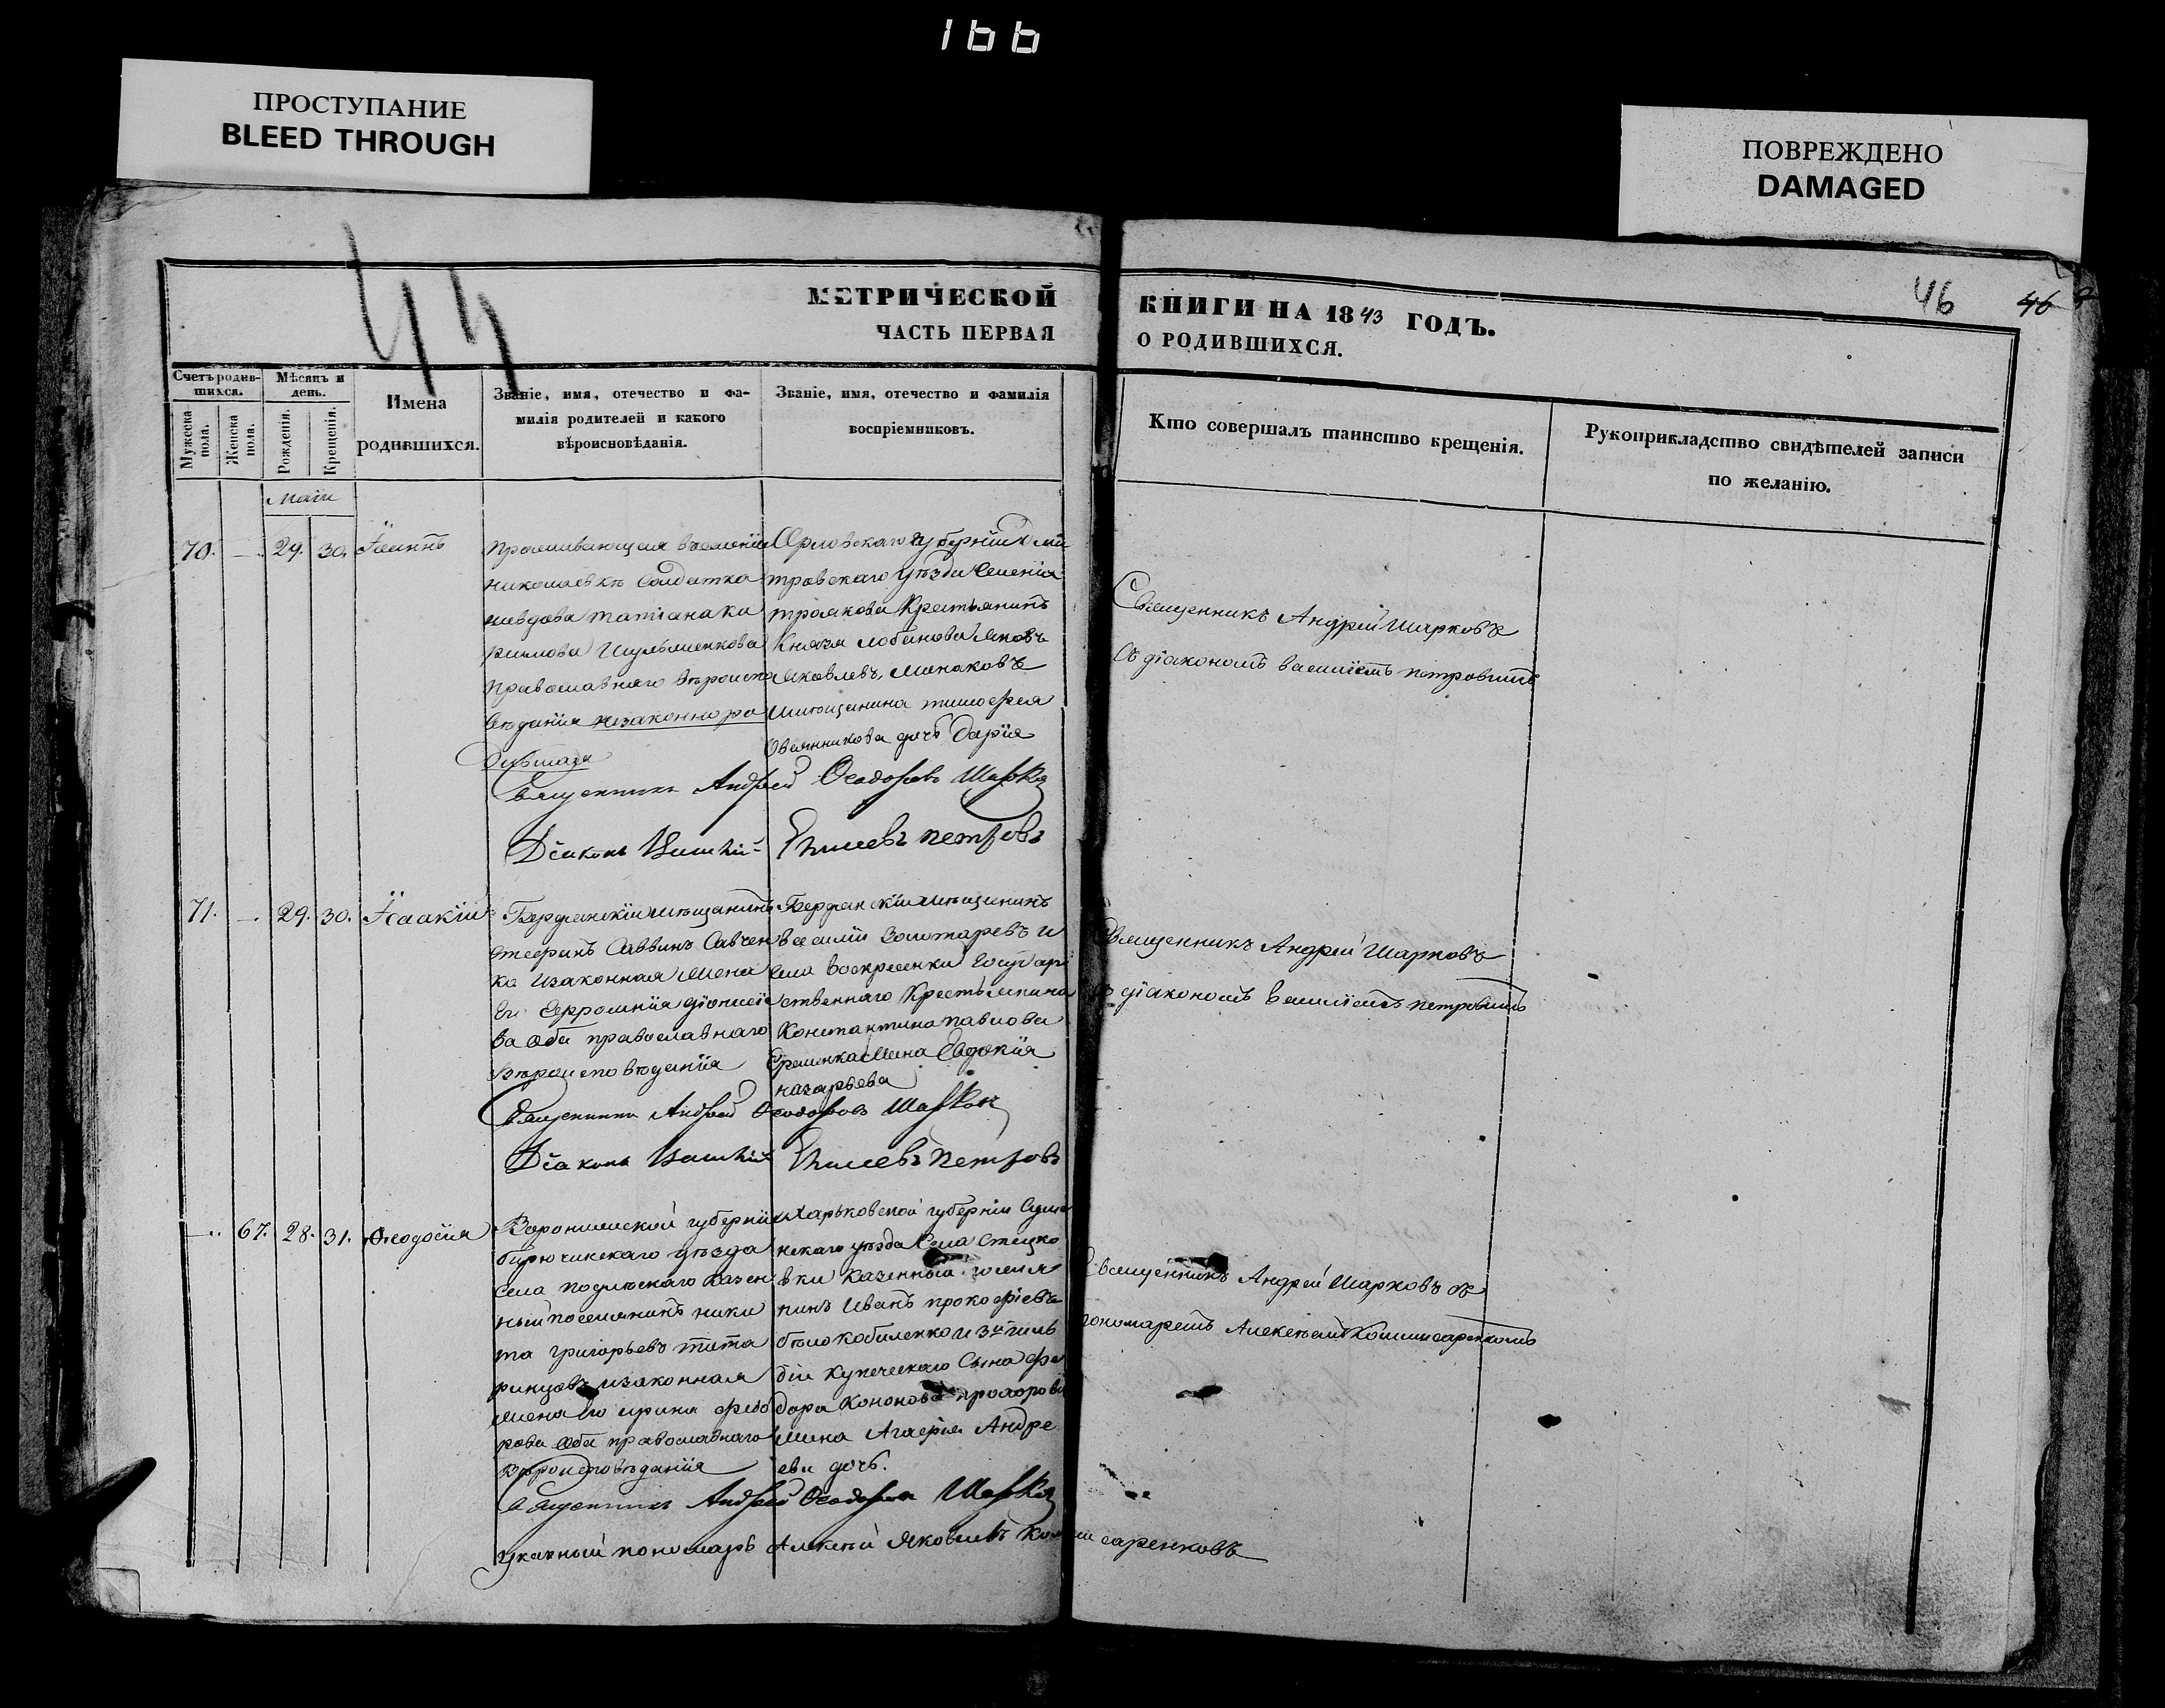 166
ПРОСТУПАНИЕ
BLEED THROUGH
ПОВРЕЖДЕНО
DAMAGED
44
46 46
МЕТРИЧЕСКОЙ КНИГИ НА 1843 ГОДЪ.
ЧАСТЬ ПЕРВАЯ О РОДИВШИХСЯ.
Счетъ родившихся.
Мужеска пола.
Женска пола.
Мѣсяцъ и день.
Рожденія.
Крещенія.
Имена
родившихся.
Званіе, имя, отечество и фа-
милія родителей и какого
вѣроисповѣданія.
Званіе, имя, отечество и фамилія
воспріемниковъ.
Кто совершалъ таинство крещенія.
Рукоприкладство свидѣтелей записи
по желанію.
Маія
70. — 29. 30.
Проживающая в селеніи
николаевкѣ Солдатка
Татіана
Православнаго вѣроиспо
вѣданія незаконноро
дившаго
Орловской губерніи Дми
тровскаго уѣзда Селенія
Крестьянинъ
Князя лобанова Яковъ
Яковлевъ, Минаковъ
мѣщанина тимофея
Овсянникова дочь Дарія
Священникъ Андрей Шарковъ
Съ діакономъ василіемъ петровымъ
Священникъ Андрей Ѳеодоровъ Шарков
Діаконъ Василій Елисеевъ петровъ
71. — 29. 30. Исаакій
Бердянскій мѣщанинъ
стефанъ Саввинъ Савчен
ко изаконная жена
Его Евфросинія діонисіе
ва оба православнаго
вѣроисповѣданія
Бердянскій мѣщанинъ
василій Золотаревъ и
села воскресенки Государ
ственнаго Крестьянина
Константина павлова
жена Евдокія
назарьева
Священникъ Андрей Шарковъ
съ діакономъ василіемъ петровымъ
Священникъ Андрей Ѳеодоровъ Шарков
Діаконъ Василій Елисеевъ петровъ
— 67. 28. 31. Ѳеодосія
Воронежской губерніи
бирюченскаго уѣзда
Села казен
ный поселянинъ ники
та григорьевъ
изаконная
жена его ирина фео
рова оба православнаго
вѣроисповѣданія
Харьковской губерніи Сум
скаго уѣзда Села Стецко
вки Казенный поселя
нинъ Иванъ прокофіевъ
бѣлокобиленко и 3й гиль
діи Купеческаго Сына фе
дора Кононова прохорова
жена Агафія Андре
ева дочь.
Священникъ Андрей Шарковъ съ
пономаремъ Алексѣемъ Коммисаренкомъ
Священникъ Андрей Ѳеодоровъ Шарков
указный пономарь Алексѣй Яковлевъ Коммисаренковъ